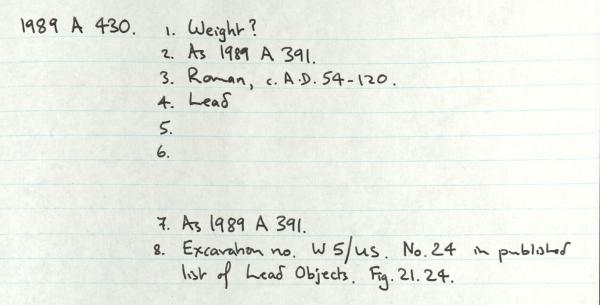 1989 A 430. 1. Weight?
2. As 1989 A 391.
3. Roman, c. A.D. 54-120.
4. Lead
5.
6.
7. As 1989 A 391.
8. Excavation no. W5/US. No. 24 in published
list of Lead Objects. Fig. 21.24.